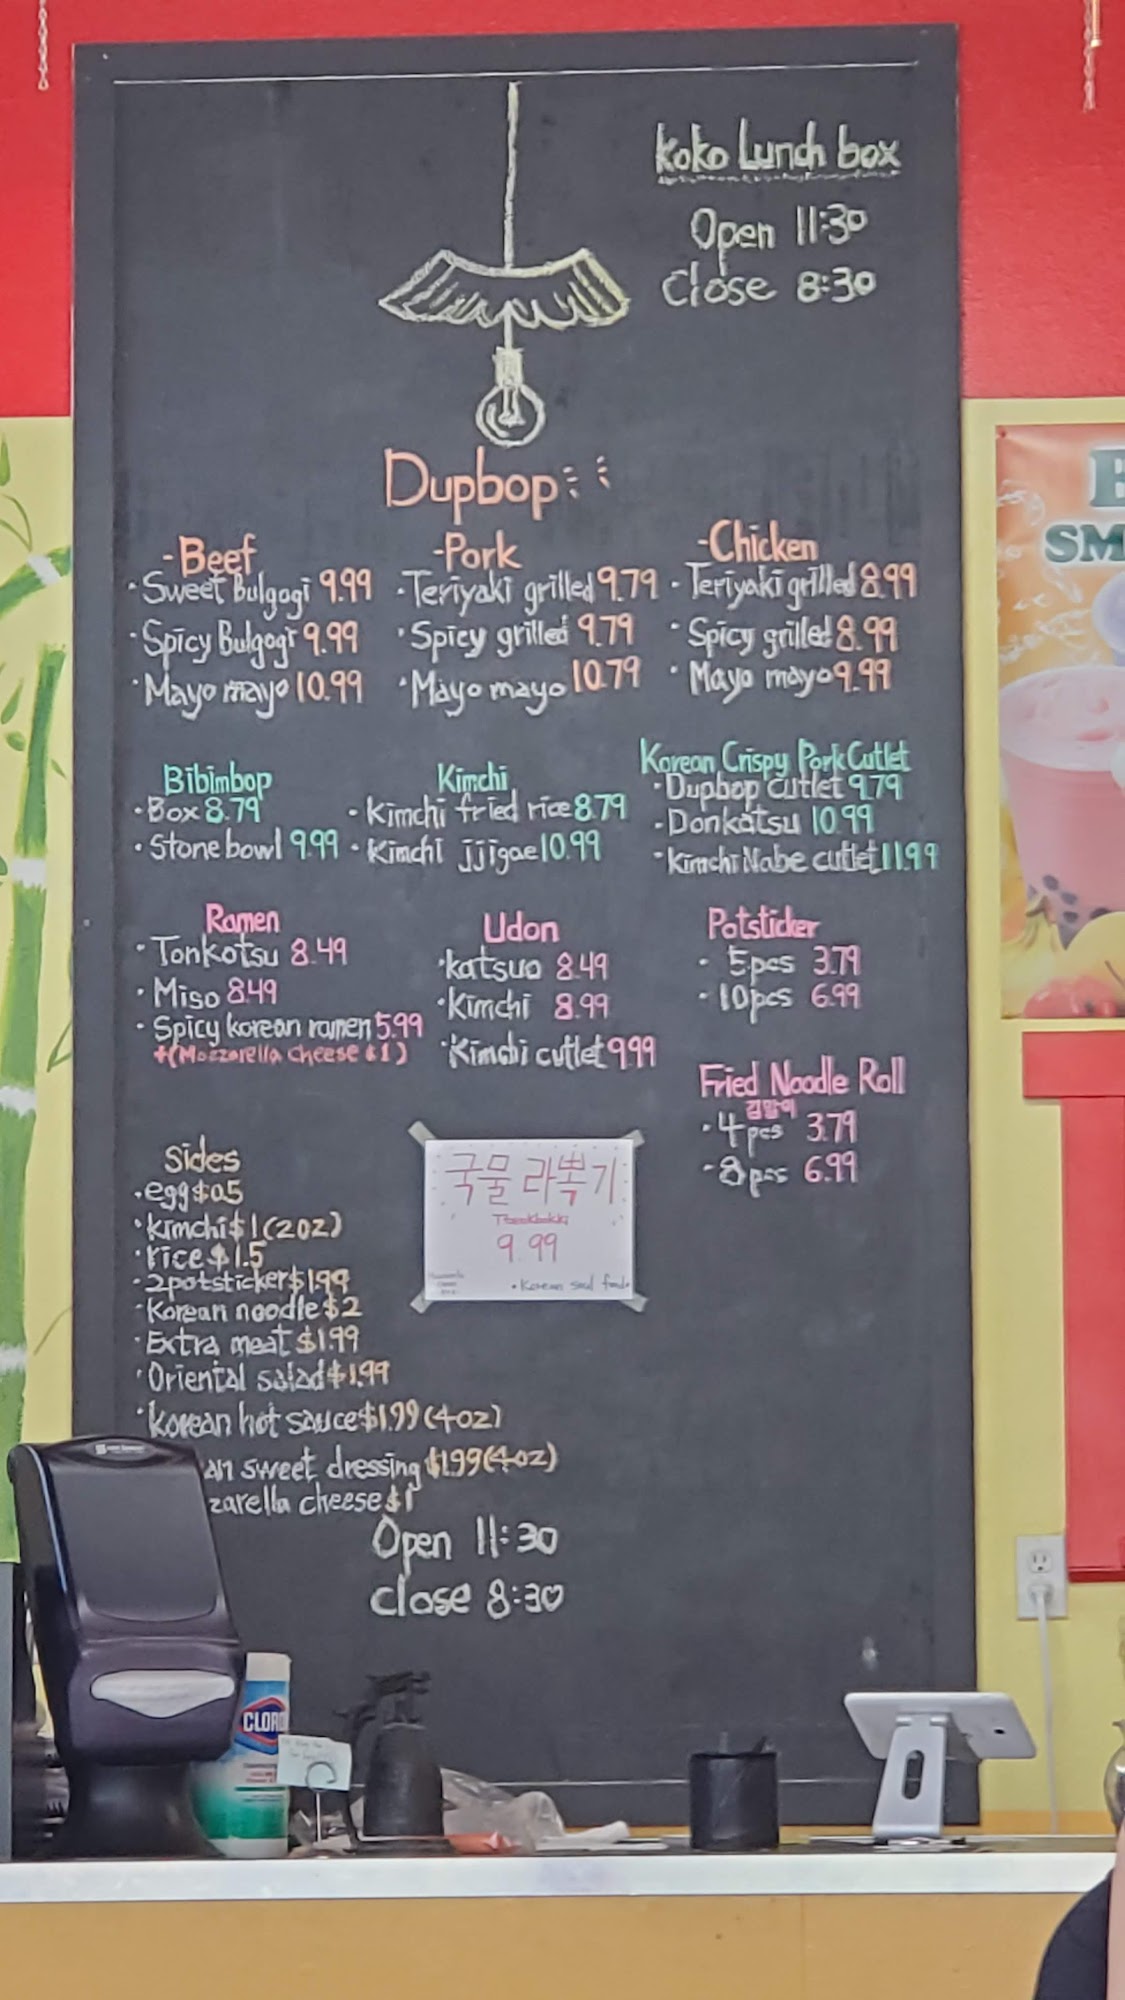 Koko Lunch box
Open 11:30
Close 8:30
Dupbop
-Beef
· Sweet Bulgogi 9.99
· Spicy Bulgogi 9.99
· Mayo mayo 10.99
-Pork
· Teriyaki grilled 9.79
· Spicy grilled 9.79
· Mayo mayo 10.79
-Chicken
· Teriyaki grilled 8.99
· Spicy grilled 8.99
· Mayo mayo 9.99
Bibimbop
· Box 8.79
· Stone bowl 9.99
Kimchi
· Kimchi fried rice 8.79
· Kimchi jjigae 10.99
Korean Crispy Pork Cutlet
· Dupbop cutlet 9.79
· Donkatsu 10.99
· Kimchi Nabe cutlet 11.99
Ramen
· Tonkotsu 8.49
· Miso 8.49
· Spicy korean ramen 5.99
+(Mozzarella cheese $1)
Udon
· katsuo 8.49
· Kimchi 8.99
· Kimchi cutlet 9.99
Potsticker
· 5pcs 3.79
· 10pcs 6.99
Fried Noodle Roll
김말이
· 4pcs 3.79
· 8pcs 6.99
Sides
· egg $0.5
· kimchi $1 (2oz)
· rice $1.5
· 2potsticker $1.99
· Korean noodle $2
· Extra meat $1.99
· Oriental salad $1.99
· Korean hot sauce $1.99 (4oz)
an sweet dressing $1.99 (4oz)
zarella cheese $1
국물 라뽁기
9.99
• Korean soul food
Open 11:30
close 8:30
CLORO
SM